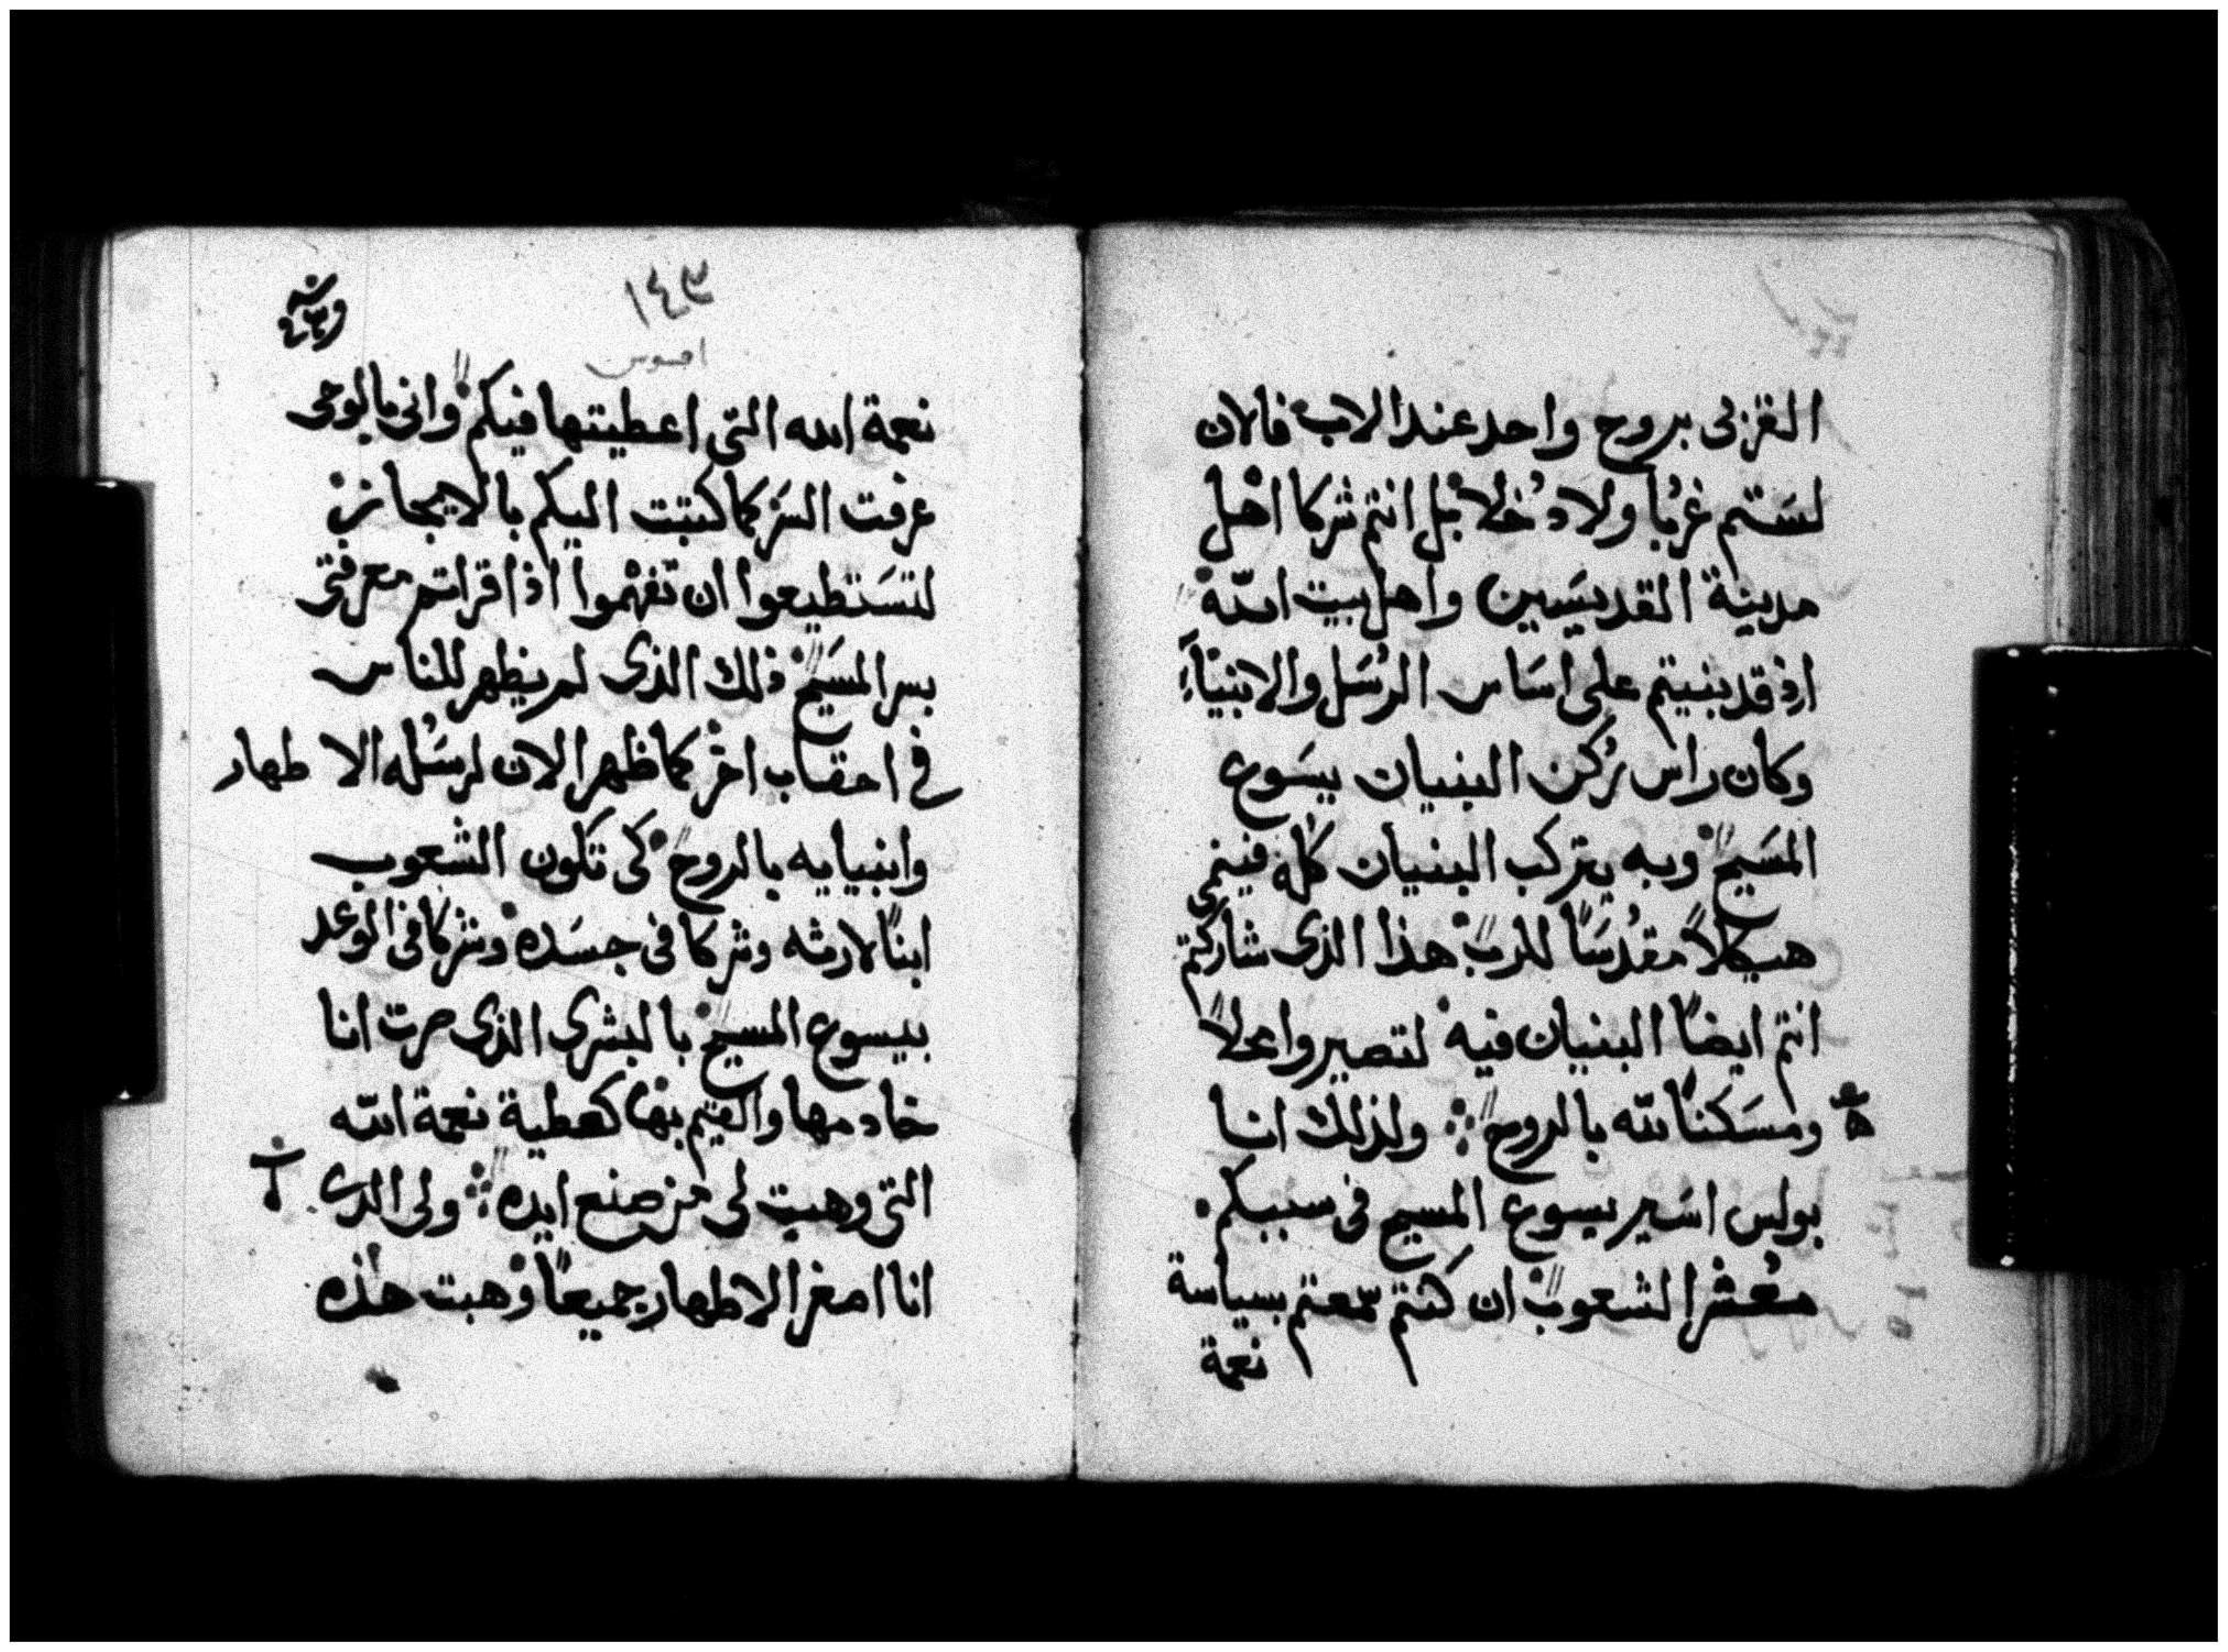 القربى بروح واحد عند الاب فالان
لستم غربا ولا دخلا بل انتم شركا اهل
مدينة القديسين واهل بيت الله
اذ قد بنيتم على اساس الرسل والانبيآء
وكان راس ركن البنيان يسوع
المسيح وبه يتركب البنيان كله فينمى
هيكلاً مقدسًا للرب هذا الذى شاركتم
انتم ايضًا البنيان فيه لتصيروا محلاً
ومسكنًا لله بالروح ولذلك انا
بولس اسير يسوع المسيح فى سببكم
معشر الشعوب ان كنتم سمعتم بسياسة
نعمة
١٤٣
افسوس
نعمة الله التى اعطيتها فيكم وانى بالوحى
عرفت السر كما كتبت اليكم بالايجاز
لتستطيعوا ان تفهموا اذا قراتم معرفتى
بسر المسيح ذلك الذى لم يظهر للناس
فى احقاب اخر كما ظهر الان لرسله الاطهار
وانبيايه بالروح كى تكون الشعوب
ابنًا لارثه وشركا فى جسده وشركا فى الوعد
بيسوع المسيح بالبشرى الذى صرت انا
خادمها والقيم بها كعطية نعمة الله
التى وهبت لى من صنع ايده ولى الذى
انا اصغر الاطهار جميعًا وهبت هذه